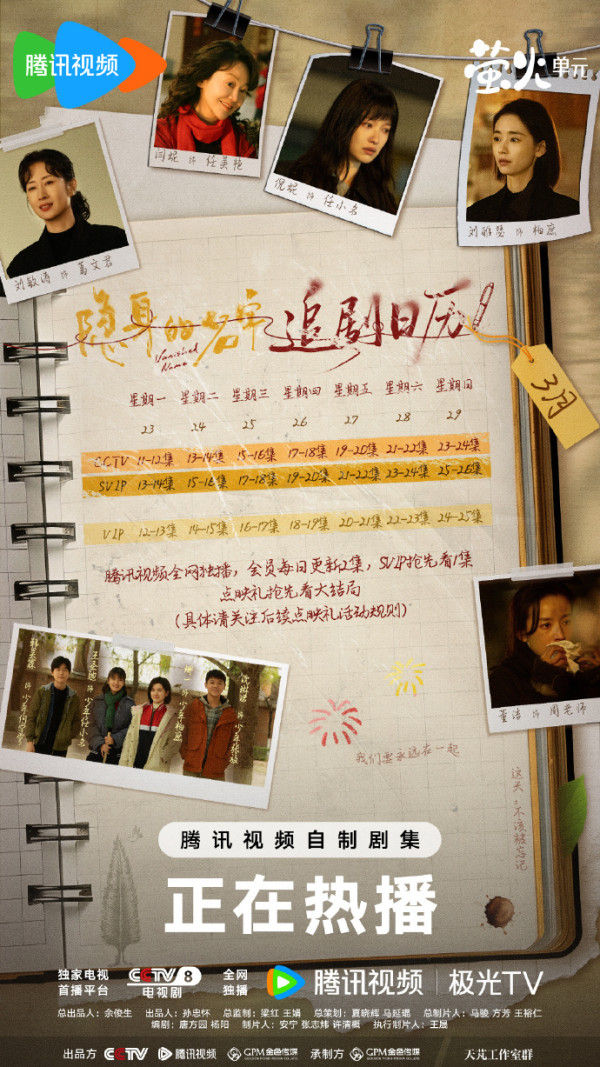 腾讯视频
萤火单元
闫妮 饰 任美艳
倪妮 饰 任小名
刘雅瑟 饰 柏庶
刘敏涛 饰 葛文君
隐身的名字
Vanished Name
追剧日历
3月
星期一 星期二 星期三 星期四 星期五 星期六 星期日
23 24 25 26 27 28 29
CCTV 11-12集 13-14集 15-16集 17-18集 19-20集 21-22集 23-24集
SVIP 13-14集 15-16集 17-18集 19-20集 21-22集 23-24集 25-26集
VIP 12-13集 14-15集 16-17集 18-19集 20-21集 22-23集 24-25集
腾讯视频全网独播，会员每日更新2集，SVIP抢先看1集
点映礼抢先看大结局
（具体请关注后续点映礼活动规则）
王圣迪 饰 少年任小名
饰 少年柏庶
董洁 饰 周老师
我们要永远在一起
这天，不该被忘记
腾讯视频自制剧集
正在热播
独家电视首播平台 CCTV 8 电视剧 全网独播 腾讯视频 极光TV
总出品人：余俊生 出品人：孙忠怀 总监制：梁红 王娟 总策划：夏晓辉 马延琨 总制片人：马骏 方芳 王裕仁
编剧：唐方园 杨阳 制片人：安宁 张志炜 许清概 执行制片人：王晟
出品方 CCTV 腾讯视频 GPM金色传媒 承制方 GPM金色传媒 天芃工作室群